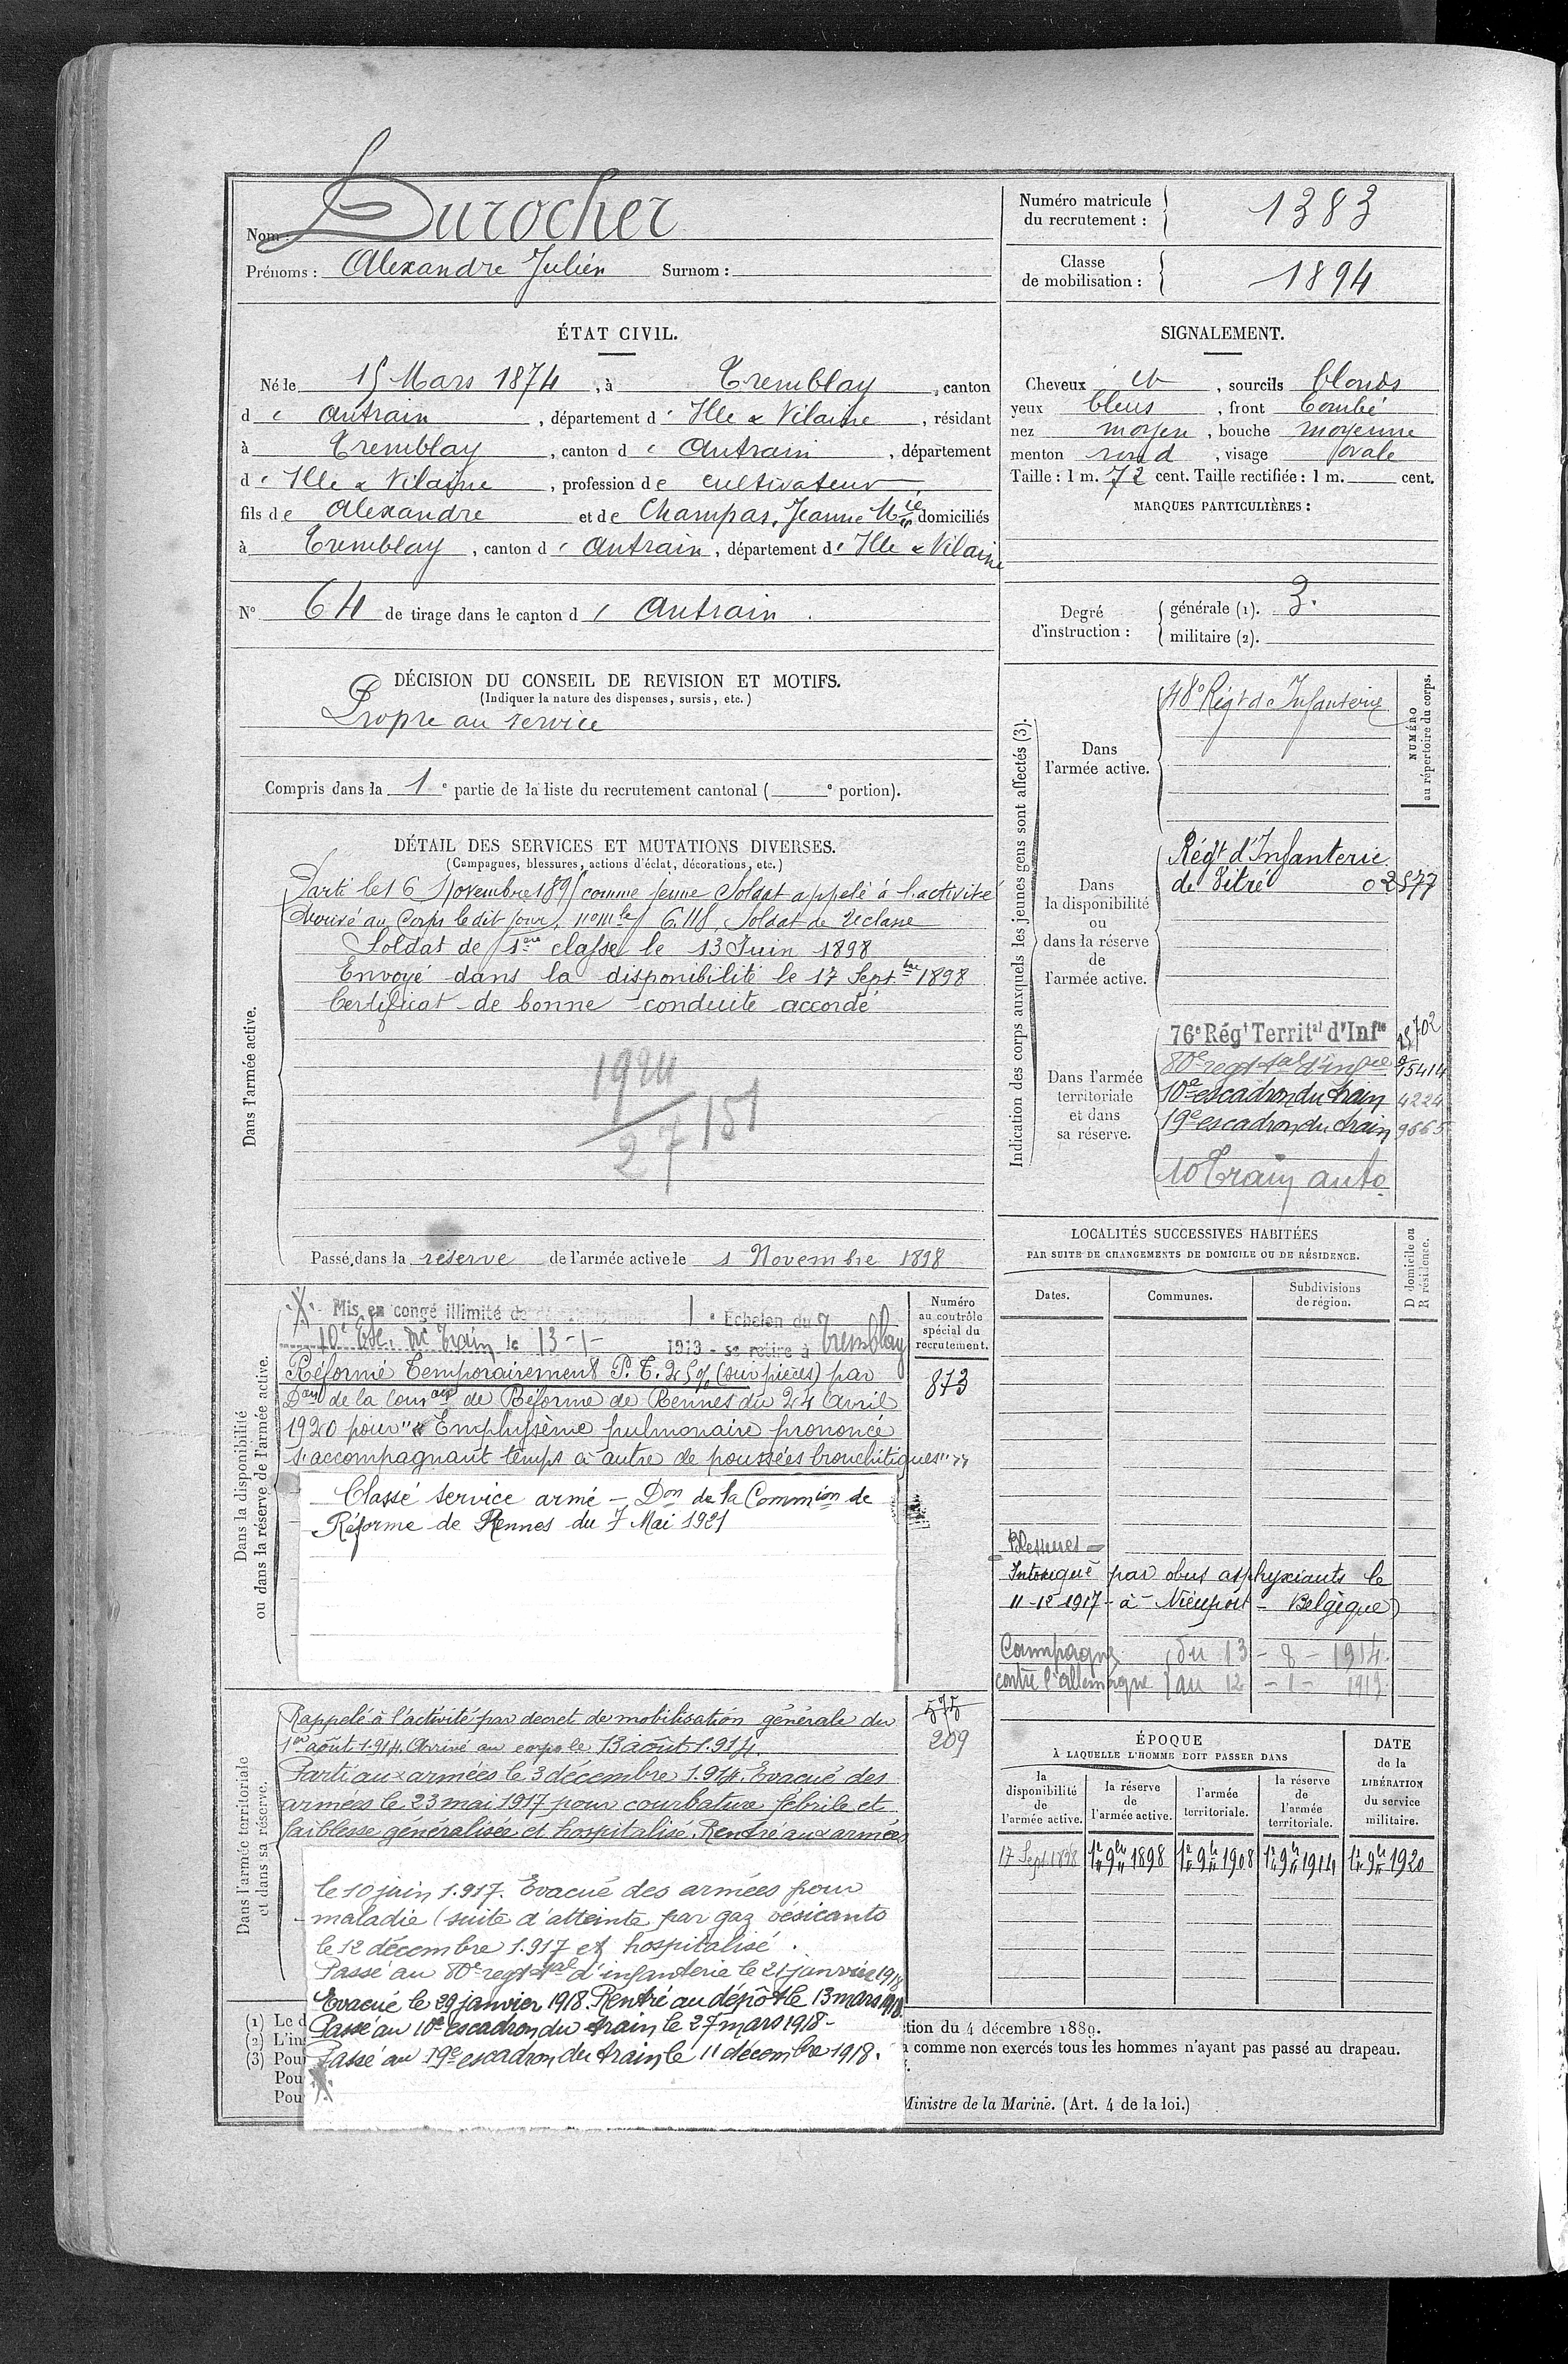 Nom : Durocher
Prénoms : Alexandre Julien Surnom :
Numéro matricule du recrutement : 1383
Classe de mobilisation : 1894
ÉTAT CIVIL.
Né le 15 Mars 1874, à Tremblay, canton
de Antrain, département d'Ille & Vilaine, résidant
à Tremblay, canton de Antrain, département
d'Ille & Vilaine, profession de cultivateur
fils de Alexandre et de Champas, Jeanne Mie domiciliés
à Tremblay, canton d'Antrain, département d'Ille & Vilaine
N° 64 de tirage dans le canton d'Antrain.
SIGNALEMENT.
Cheveux et, sourcils blonds
yeux bleus, front bombé
nez moyen, bouche moyenne
menton rond, visage ovale
Taille : 1 m. 72 cent. Taille rectifiée : 1 m. cent.
MARQUES PARTICULIÈRES :
Degré d'instruction : générale (1). 3.
militaire (2).
DÉCISION DU CONSEIL DE REVISION ET MOTIFS.
(Indiquer la nature des dispenses, sursis, etc.)
Propre au service
Compris dans la 1e partie de la liste du recrutement cantonal ( e portion).
DÉTAIL DES SERVICES ET MUTATIONS DIVERSES.
(Campagnes, blessures, actions d'éclat, décorations, etc.)
Dans l'armée active.
Parti le 16 Novembre 1895 comme jeune Soldat appelé à l'activité
Arrivé au Corps le dit jour, n° mle 6.118, Soldat de 2e classe
Soldat de 1ère classe le 13 Juin 1898
Envoyé dans la disponibilité le 17 Septbre 1898
Certificat de bonne conduite accordé
1924
27151
Passé dans la réserve de l'armée active le 1 Novembre 1898
Indication des corps auxquels les jeunes gens sont affectés (3).
NUMÉRO au répertoire du corps.
Dans l'armée active.
48e Régt d'Infanterie
Dans la disponibilité ou dans la réserve de l'armée active.
Régt d'Infanterie
de Vitré 02577
Dans l'armée territoriale et dans sa réserve.
76e Régt Territal d'Infie
80e regt tal d'infie 15414
10e escadron du train 4224
19e escadron du train 9665
10 Train auto
LOCALITÉS SUCCESSIVES HABITÉES
PAR SUITE DE CHANGEMENTS DE DOMICILE OU DE RÉSIDENCE.
D domicile ou R résidence.
Dates. Communes. Subdivisions de région.
Blessures =
Intoxiqué par obus asphyxiants le
11-12-1917 - à - Nieuport - Belgique)
Campagne du 13 - 8 - 1914
contre l'allemagne au 12 - 1 - 1919
Dans la disponibilité ou dans la réserve de l'armée active.
Numéro au contrôle spécial du recrutement.
Mis en congé illimité de 1e Echelon du
10e Esc. du Train le 13-1- 1919 - se retire à Tremblay
873
Réformé temporairement P.T. 25% (sur pièces) par
Don de la Comon de Réforme de Rennes du 24 Avril
1920 pour "Emphysème pulmonaire prononcé
s'accompagnant temps à autre de poussées bronchitiques"
Classé service armé - Don de la Commion de
Réforme de Rennes du 7 Mai 1921
Dans l'armée territoriale et dans sa réserve.
575
209
Rappelé à l'activité par decret de mobilisation générale du
1er août 1.914. Arrivé au corps le 13 août 1.914.
Parti aux armées le 3 décembre 1.914. Evacué des
armées le 23 mai 1917 pour courbature fébrile et
faiblesse généralisée et hospitalisé. Rentré aux armées
le 10 juin 1.917. Evacué des armées pour
maladie (suite d'atteinte par gaz vésicants
le 12 décembre 1.917 et hospitalisé.
Passé au 80e regt tal d'infanterie le 21 janvier 1918
Evacué le 29 janvier 1918. Rentré au dépôt le 13 mars 1918.
Passé au 10e escadron du train le 27 mars 1918-
Passé au 19e escadron du train le 11 décembre 1918.
ÉPOQUE
À LAQUELLE L'HOMME DOIT PASSER DANS
la disponibilité de l'armée active.
la réserve de l'armée active.
l'armée territoriale.
la réserve de l'armée territoriale.
DATE de la LIBÉRATION du service militaire.
17 Sept 1898 1er 9bre 1898 1er 9bre 1908 1er 9bre 1914 1er 9bre 1920
(1) Le d
(2) L'in
(3) Pour
Pou
Pou
ction du 4 décembre 1889.
comme non exercés tous les hommes n'ayant pas passé au drapeau.
Ministre de la Marine. (Art. 4 de la loi.)